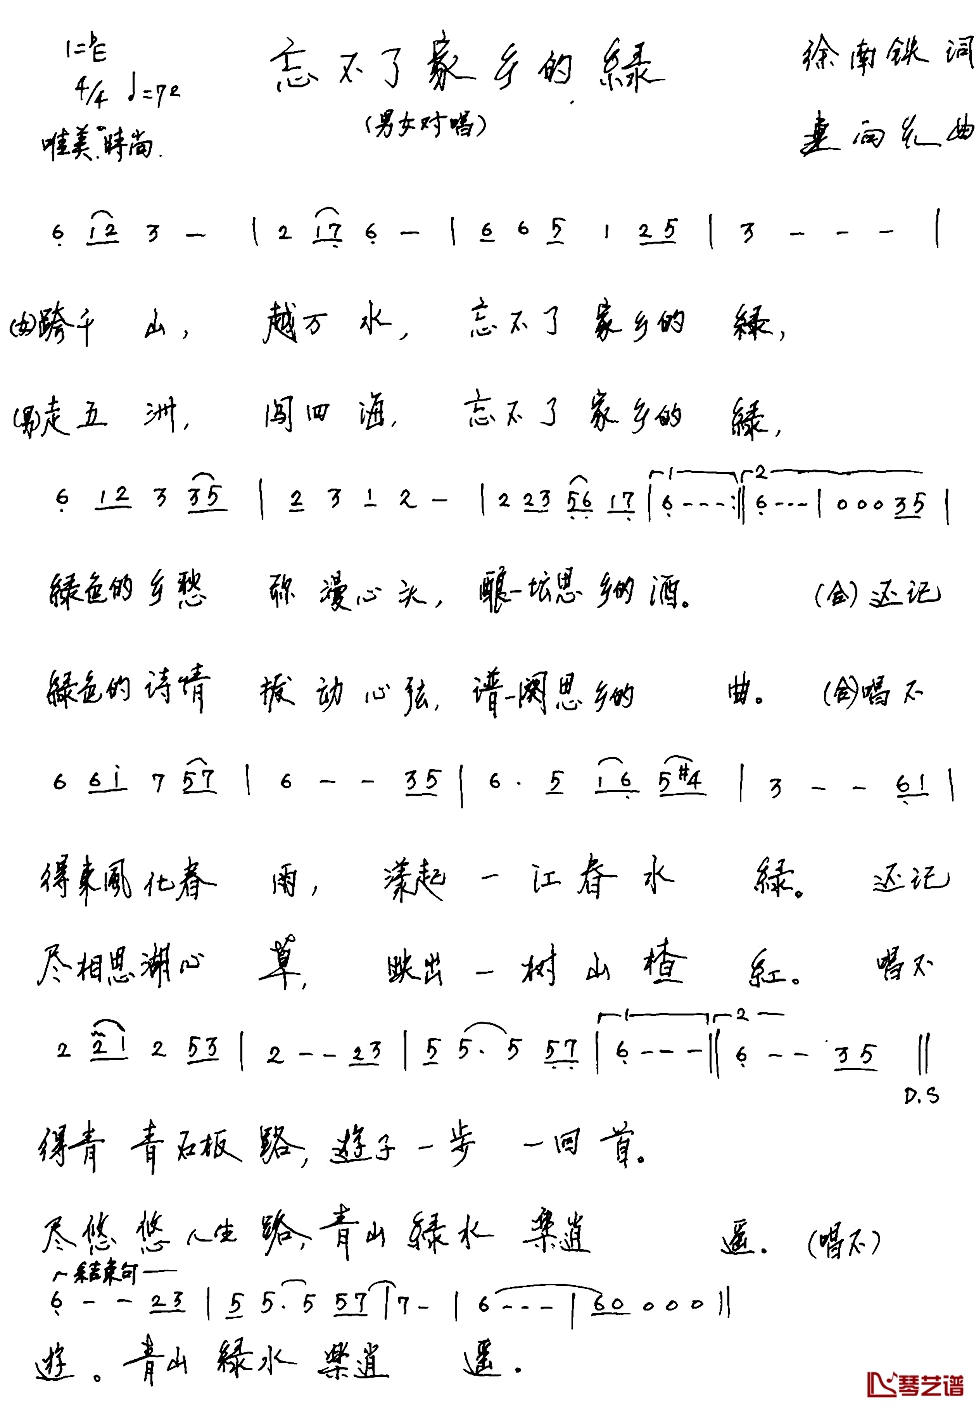 1=♭E
忘不了家乡的緑
徐南铁 词
4/4 ♩=72
(男女对唱)
唯美.時尚.
向 曲
6̣ 1 2 3 － | 2 1 7̣ 6̣ － | 6̣ 6 5 1 2 5 | 3 － － － |
(女)跨千 山, 越万 水, 忘不了 家乡的 緑,
(男)走五 洲, 闯四 海, 忘不了 家乡的 緑,
6̣ 1 2 3 3 5 | 2 3 1 2 － | 2 2 3 5̣ 6̣ 1 7̣ | 1 6̣ － － － :‖ 2 6̣ － － － | 0 0 0 3 5 |
緑色的乡愁 弥漫心头, 酿一坛思乡的酒。 (合)还记
緑色的诗情 拨动心弦, 谱一阕思乡的 曲。 (合)唱不
6 6 i 7 5 7 | 6 － － 3 5 | 6· 5 1 6̣ 5 #4 | 3 － － 6̣ 1 |
得東風化春 雨, 漾起一江春水 緑。 还记
尽相思湖心 草, 映出一树山楂 紅。 唱不
2 2 1 2 5 3 | 2 － － 2 3 | 5 5· 5 5̣ 7̣ | 1 6̣ － － － ‖ 2 6̣ － － 3 5 ‖
D.S
得青 青石板 路, 遊子一步 一回首。
尽悠 悠人生 路, 青山緑水 樂逍 遥. (唱不)
結束句
6̣ － － 2 3 | 5 5· 5 5 7 | 7 － | 6 － － － | 6 0 0 0 0 ‖
遊。青山 緑水 樂逍 遥.
琴艺谱